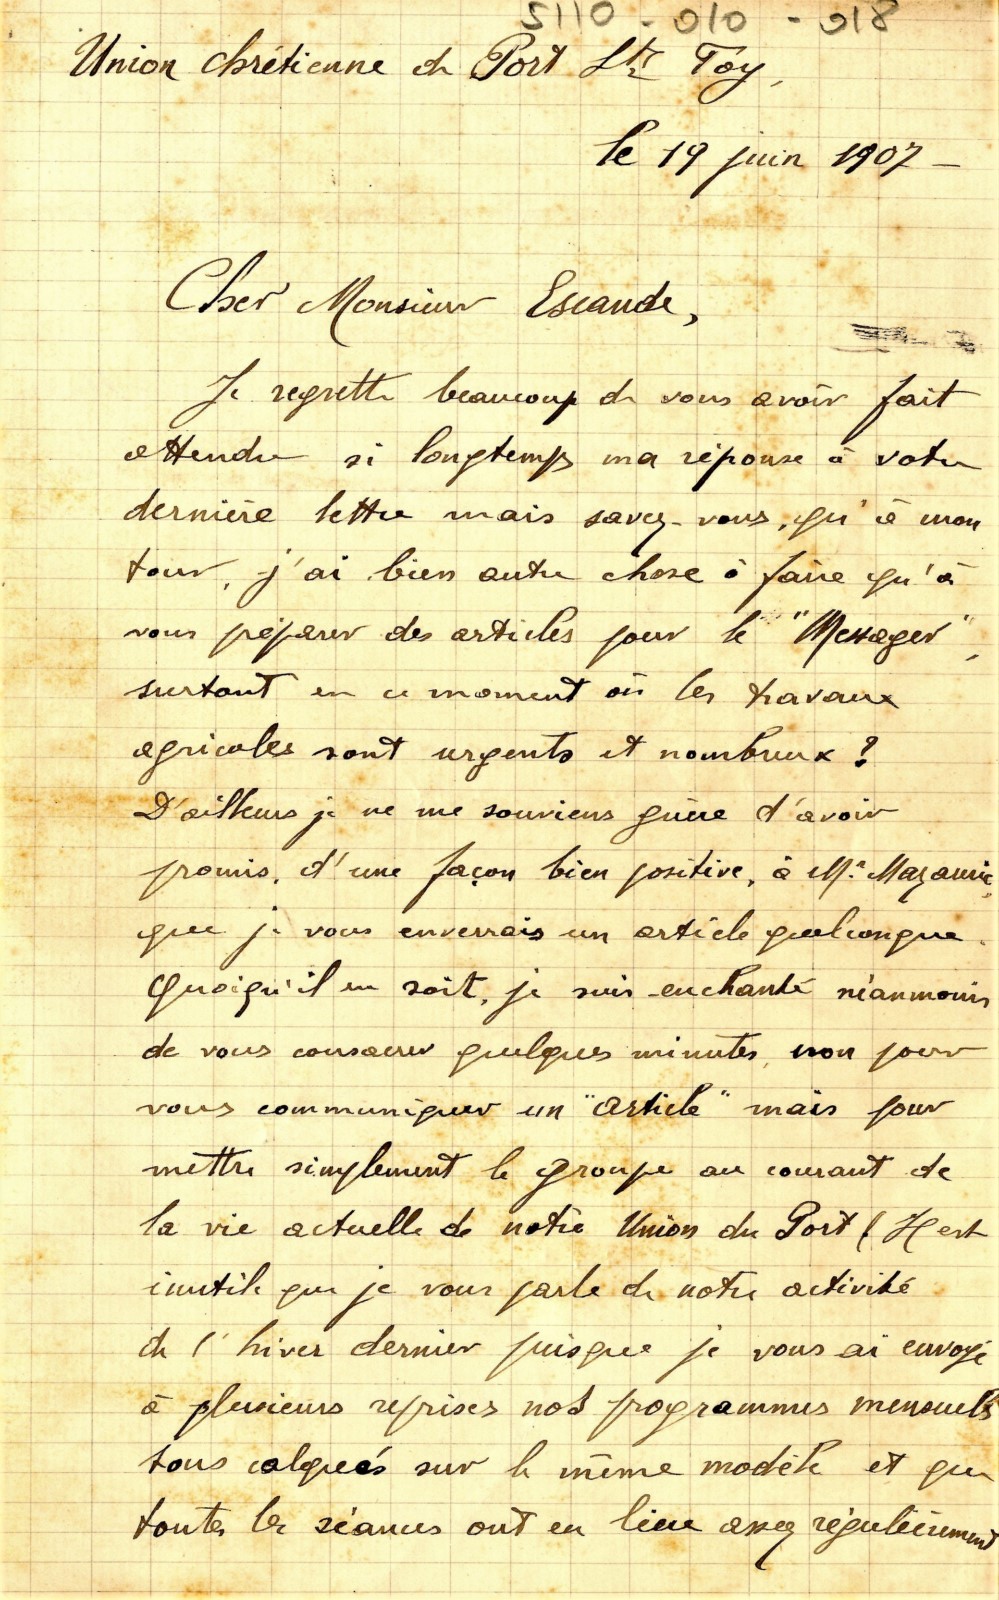 5110 - 010 - 018
Union chrétienne de Port Ste Foy,
le 19 juin 1907 -
Cher Monsieur Escande,
Je regrette beaucoup de vous avoir fait
attendre si longtemps ma réponse à votre
dernière lettre mais savez-vous, qu'à mon
tour, j'ai bien autre chose à faire qu'à
vous préparer des articles pour le "Messager",
surtout en ce moment où les travaux
agricoles sont urgents et nombreux ?
D'ailleurs je ne me souviens guère d'avoir
promis, d'une façon bien positive, à Mr Mazauric,
que je vous enverrais un article quelconque.
Quoiqu'il en soit, je suis enchanté néanmoins
de vous consacrer quelques minutes, non pour
vous communiquer un "article" mais pour
mettre simplement le groupe au courant de
la vie actuelle de notre Union du Port (Il est
inutile que je vous parle de notre activité
de l'hiver dernier puisque je vous ai envoyé
à plusieurs reprises nos programmes mensuels
tous calqués sur le même modèle et que
toutes les séances ont eu lieu assez régulièrement